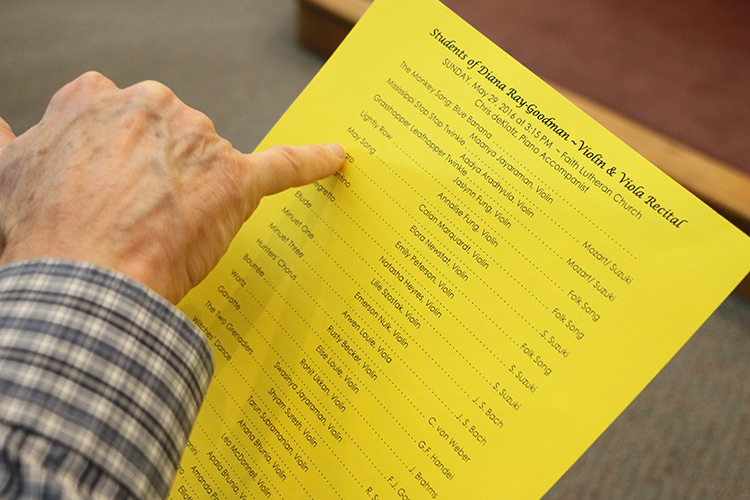 Students of Diana Ray-Goodman ~Violin & Viola Recital
SUNDAY, May 29, 2016 at 3:15 PM ~ Faith Lutheran Church
Chris deKlotz, Piano Accompanist
The Monkey Song; Blue Banana Maanya Jayaraman, Violin
Mississippi Stop Stop Twinkle Aadya Aradhyula, Violin Mozart/ Suzuki
Grasshopper Leafhopper Twinkle Jaslynn Fung, Violin Mozart/ Suzuki
Lightly Row Annalise Fung, Violin Folk Song
May Song Calan Marquardt, Violin Folk Song
Elora Newstat, Violin S. Suzuki
Emily Peterson, Violin Folk Song
Natasha Heyres, Violin S. Suzuki
Etude Lilie Szostak, Violin S. Suzuki
Minuet One Emerson Nuik, Violin J. S. Bach
Minuet Three Arwen Louie, Viola J. S. Bach
Hunters' Chorus Rusty Becker, Violin C. von Weber
Bourrée Elise Louie, Violin G.F. Handel
Waltz Rohit Ukkan, Violin J. Brahms
Gavotte Jayaraman, Violin F.J.
The Two Grenadiers Shyam Suresh, Violin R.
Witches' Dance Tarun Subramanian, Violin
Ahana Bhunia, Violin
Leo McDonnell, Violin
Apala Bhunia, Violin
Amanda